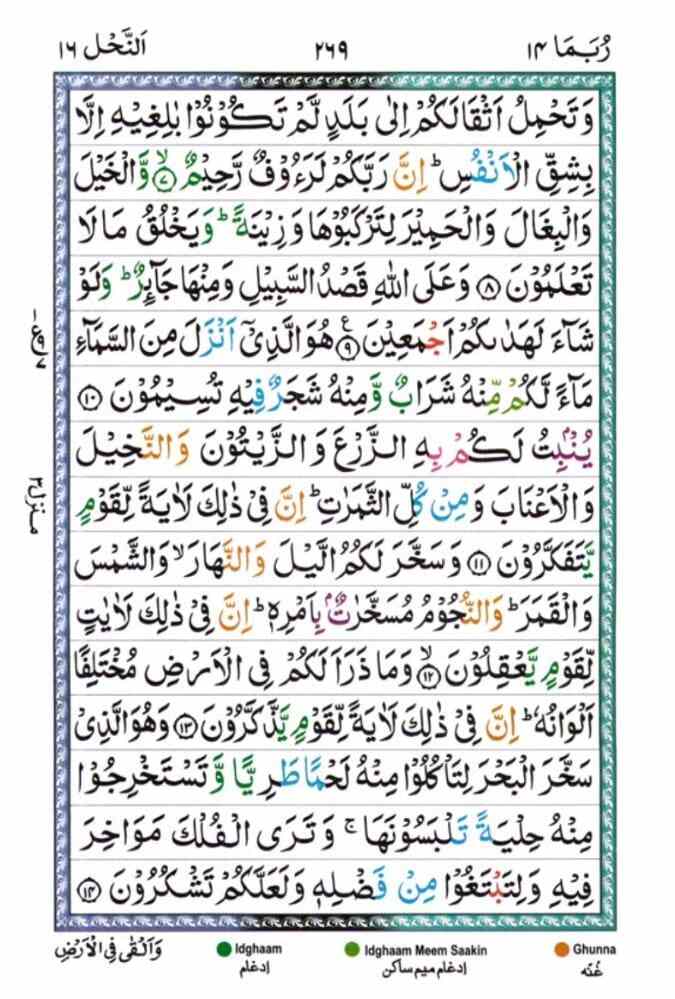 رُبَمَا ١٤ ٢٦٩ اَلنَّحْل ١٦
وَتَحْمِلُ اَثْقَالَكُمْ اِلٰى بَلَدٍ لَّمْ تَكُوْنُوْا بٰلِغِيْهِ اِلَّا
بِشِقِّ الْاَنْفُسِ ؕ اِنَّ رَبَّكُمْ لَرَءُوْفٌ رَّحِيْمٌ ۙ‏﴿۷﴾ وَّالْخَيْلَ
وَالْبِغَالَ وَالْحَمِيْرَ لِتَرْكَبُوْهَا وَزِيْنَةً ؕ وَيَخْلُقُ مَا لَا
تَعْلَمُوْنَ ﴿۸﴾ وَعَلَى اللّٰهِ قَصْدُ السَّبِيْلِ وَمِنْهَا جَآئِرٌ ؕ وَلَوْ
شَآءَ لَهَدٰىكُمْ اَجْمَعِيْنَ ﴿۹﴾ ع هُوَ الَّذِىْۤ اَنْزَلَ مِنَ السَّمَآءِ
مَآءً لَّكُمْ مِّنْهُ شَرَابٌ وَّمِنْهُ شَجَرٌ فِيْهِ تُسِيْمُوْنَ ﴿۱۰﴾
يُنْۢبِتُ لَكُمْ بِهِ الزَّرْعَ وَالزَّيْتُوْنَ وَالنَّخِيْلَ
وَالْاَعْنَابَ وَمِنْ كُلِّ الثَّمَرٰتِ ؕ اِنَّ فِىْ ذٰلِكَ لَاٰيَةً لِّقَوْمٍ
يَّتَفَكَّرُوْنَ ﴿۱۱﴾ وَسَخَّرَ لَكُمُ الَّيْلَ وَالنَّهَارَ ۙ وَالشَّمْسَ
وَالْقَمَرَ ؕ وَالنُّجُوْمُ مُسَخَّرٰتٌۢ بِاَمْرِهٖ ؕ اِنَّ فِىْ ذٰلِكَ لَاٰيٰتٍ
لِّقَوْمٍ يَّعْقِلُوْنَ ۙ﴿۱۲﴾ وَمَا ذَرَاَ لَكُمْ فِى الْاَرْضِ مُخْتَلِفًا
اَلْوَانُهٗ ؕ اِنَّ فِىْ ذٰلِكَ لَاٰيَةً لِّقَوْمٍ يَّذَّكَّرُوْنَ ﴿۱۳﴾ وَهُوَ الَّذِىْ
سَخَّرَ الْبَحْرَ لِتَاْكُلُوْا مِنْهُ لَحْمًا طَرِيًّا وَّتَسْتَخْرِجُوْا
مِنْهُ حِلْيَةً تَلْبَسُوْنَهَا ۚ وَتَرَى الْفُلْكَ مَوَاخِرَ
فِيْهِ وَلِتَبْتَغُوْا مِنْ فَضْلِهٖ وَلَعَلَّكُمْ تَشْكُرُوْنَ ﴿۱۴﴾
منزل ۳
وَاَلْقٰى فِى الْاَرْضِ
Idghaam Idghaam Meem Saakin Ghunna
ادغام ادغام میم ساکن غُنّہ